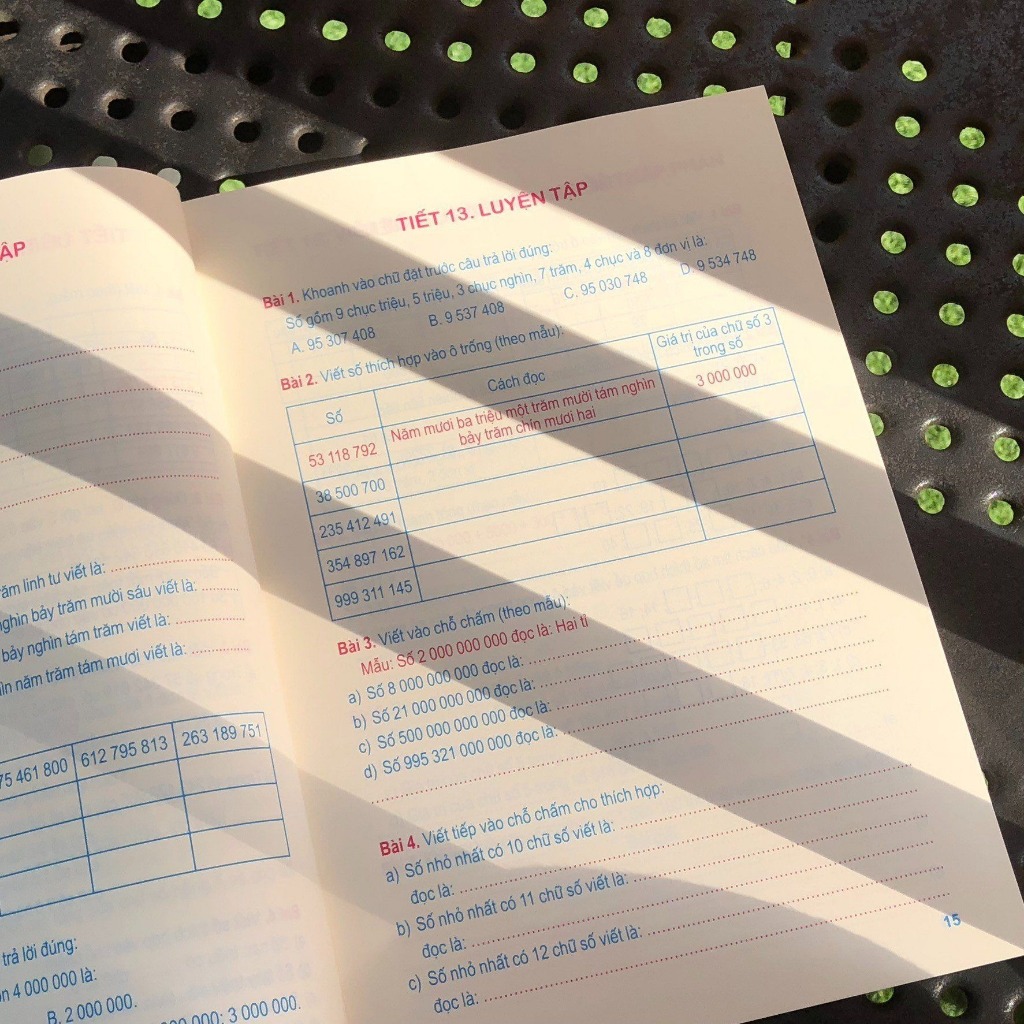 ẬP
trăm linh tư viết là:
nghìn bảy trăm mười sáu viết là:
bảy nghìn tám trăm viết là:
năm trăm tám mươi viết là:
75 461 800 612 795 813 263 189 751
trả lời đúng:
4 000 000 là:
B. 2 000 000.
3 000 000.
TIẾT 13. LUYỆN TẬP
Bài 1. Khoanh vào chữ đặt trước câu trả lời đúng:
Số gồm 9 chục triệu, 5 triệu, 3 chục nghìn, 7 trăm, 4 chục và 8 đơn vị là:
A. 95 307 408 B. 9 537 408 C. 95 030 748 D. 9 534 748
Bài 2. Viết số thích hợp vào ô trống (theo mẫu):
Số Cách đọc Giá trị của chữ số 3
trong số
53 118 792 Năm mươi ba triệu một trăm mười tám nghìn
bảy trăm chín mươi hai 3 000 000
38 500 700
235 412 491
354 897 162
999 311 145
Bài 3. Viết vào chỗ chấm (theo mẫu):
Mẫu: Số 2 000 000 000 đọc là: Hai tỉ
a) Số 8 000 000 000 đọc là:
b) Số 21 000 000 000 đọc là:
c) Số 500 000 000 000 đọc là:
d) Số 995 321 000 000 đọc là:
Bài 4. Viết tiếp vào chỗ chấm cho thích hợp:
a) Số nhỏ nhất có 10 chữ số viết là:
đọc là:
b) Số nhỏ nhất có 11 chữ số viết là:
đọc là:
c) Số nhỏ nhất có 12 chữ số viết là:
đọc là:
15